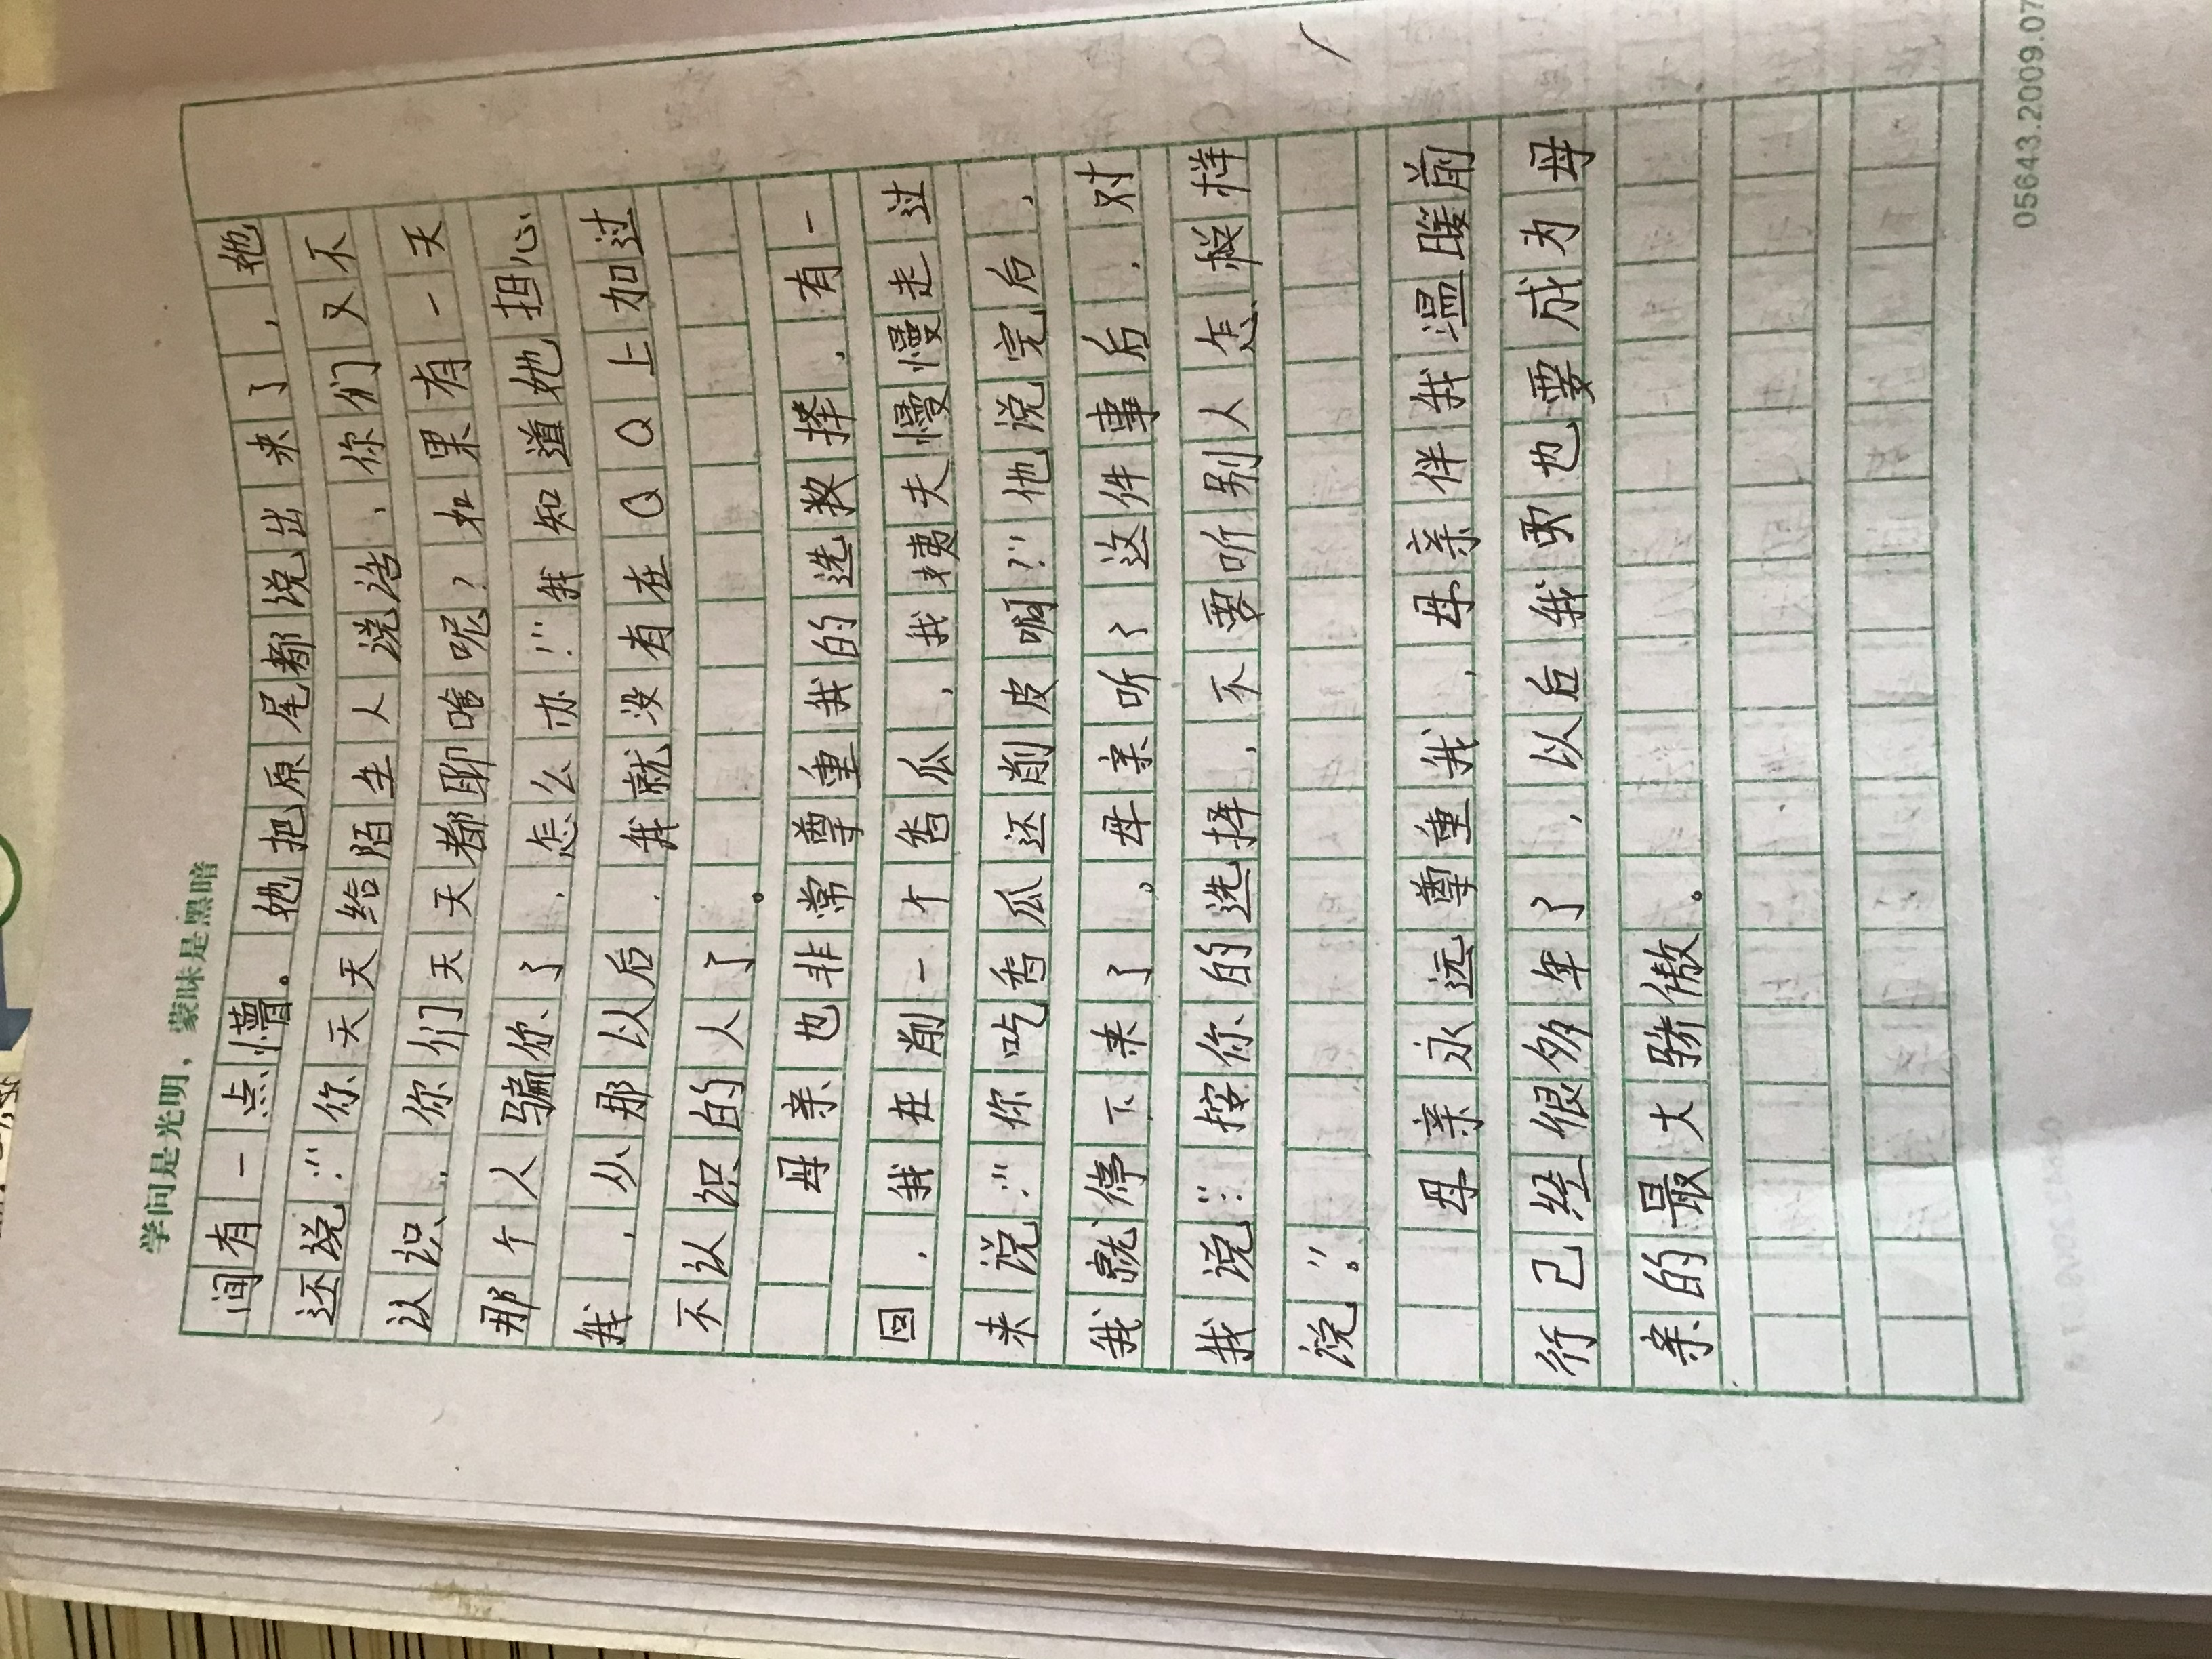 学问是光明，蒙昧是黑暗
间有一点懵。她把原尾都说出来了，她
还说：“你天天给陌生人说话，你们又不
认识，你们天天都聊啥呢？如果有一天
那个人骗你了，怎么办！”我知道她担心
我，从那以后，我就没有在QQ上加过
不认识的人了。
母亲也非常尊重我的选择，有一
回，我在削一个香瓜，我姨夫慢慢走过
来说：“你吃香瓜还削皮啊？”他说完后，
我就停下来了。母亲听了这件事后，对
我说：“按你的选择，不要听别人怎样
说。”
母亲永远尊重我，母亲伴我温暖前
行已经很多年了，以后我也要成为母
亲的最大骄傲。
05643.2009.07